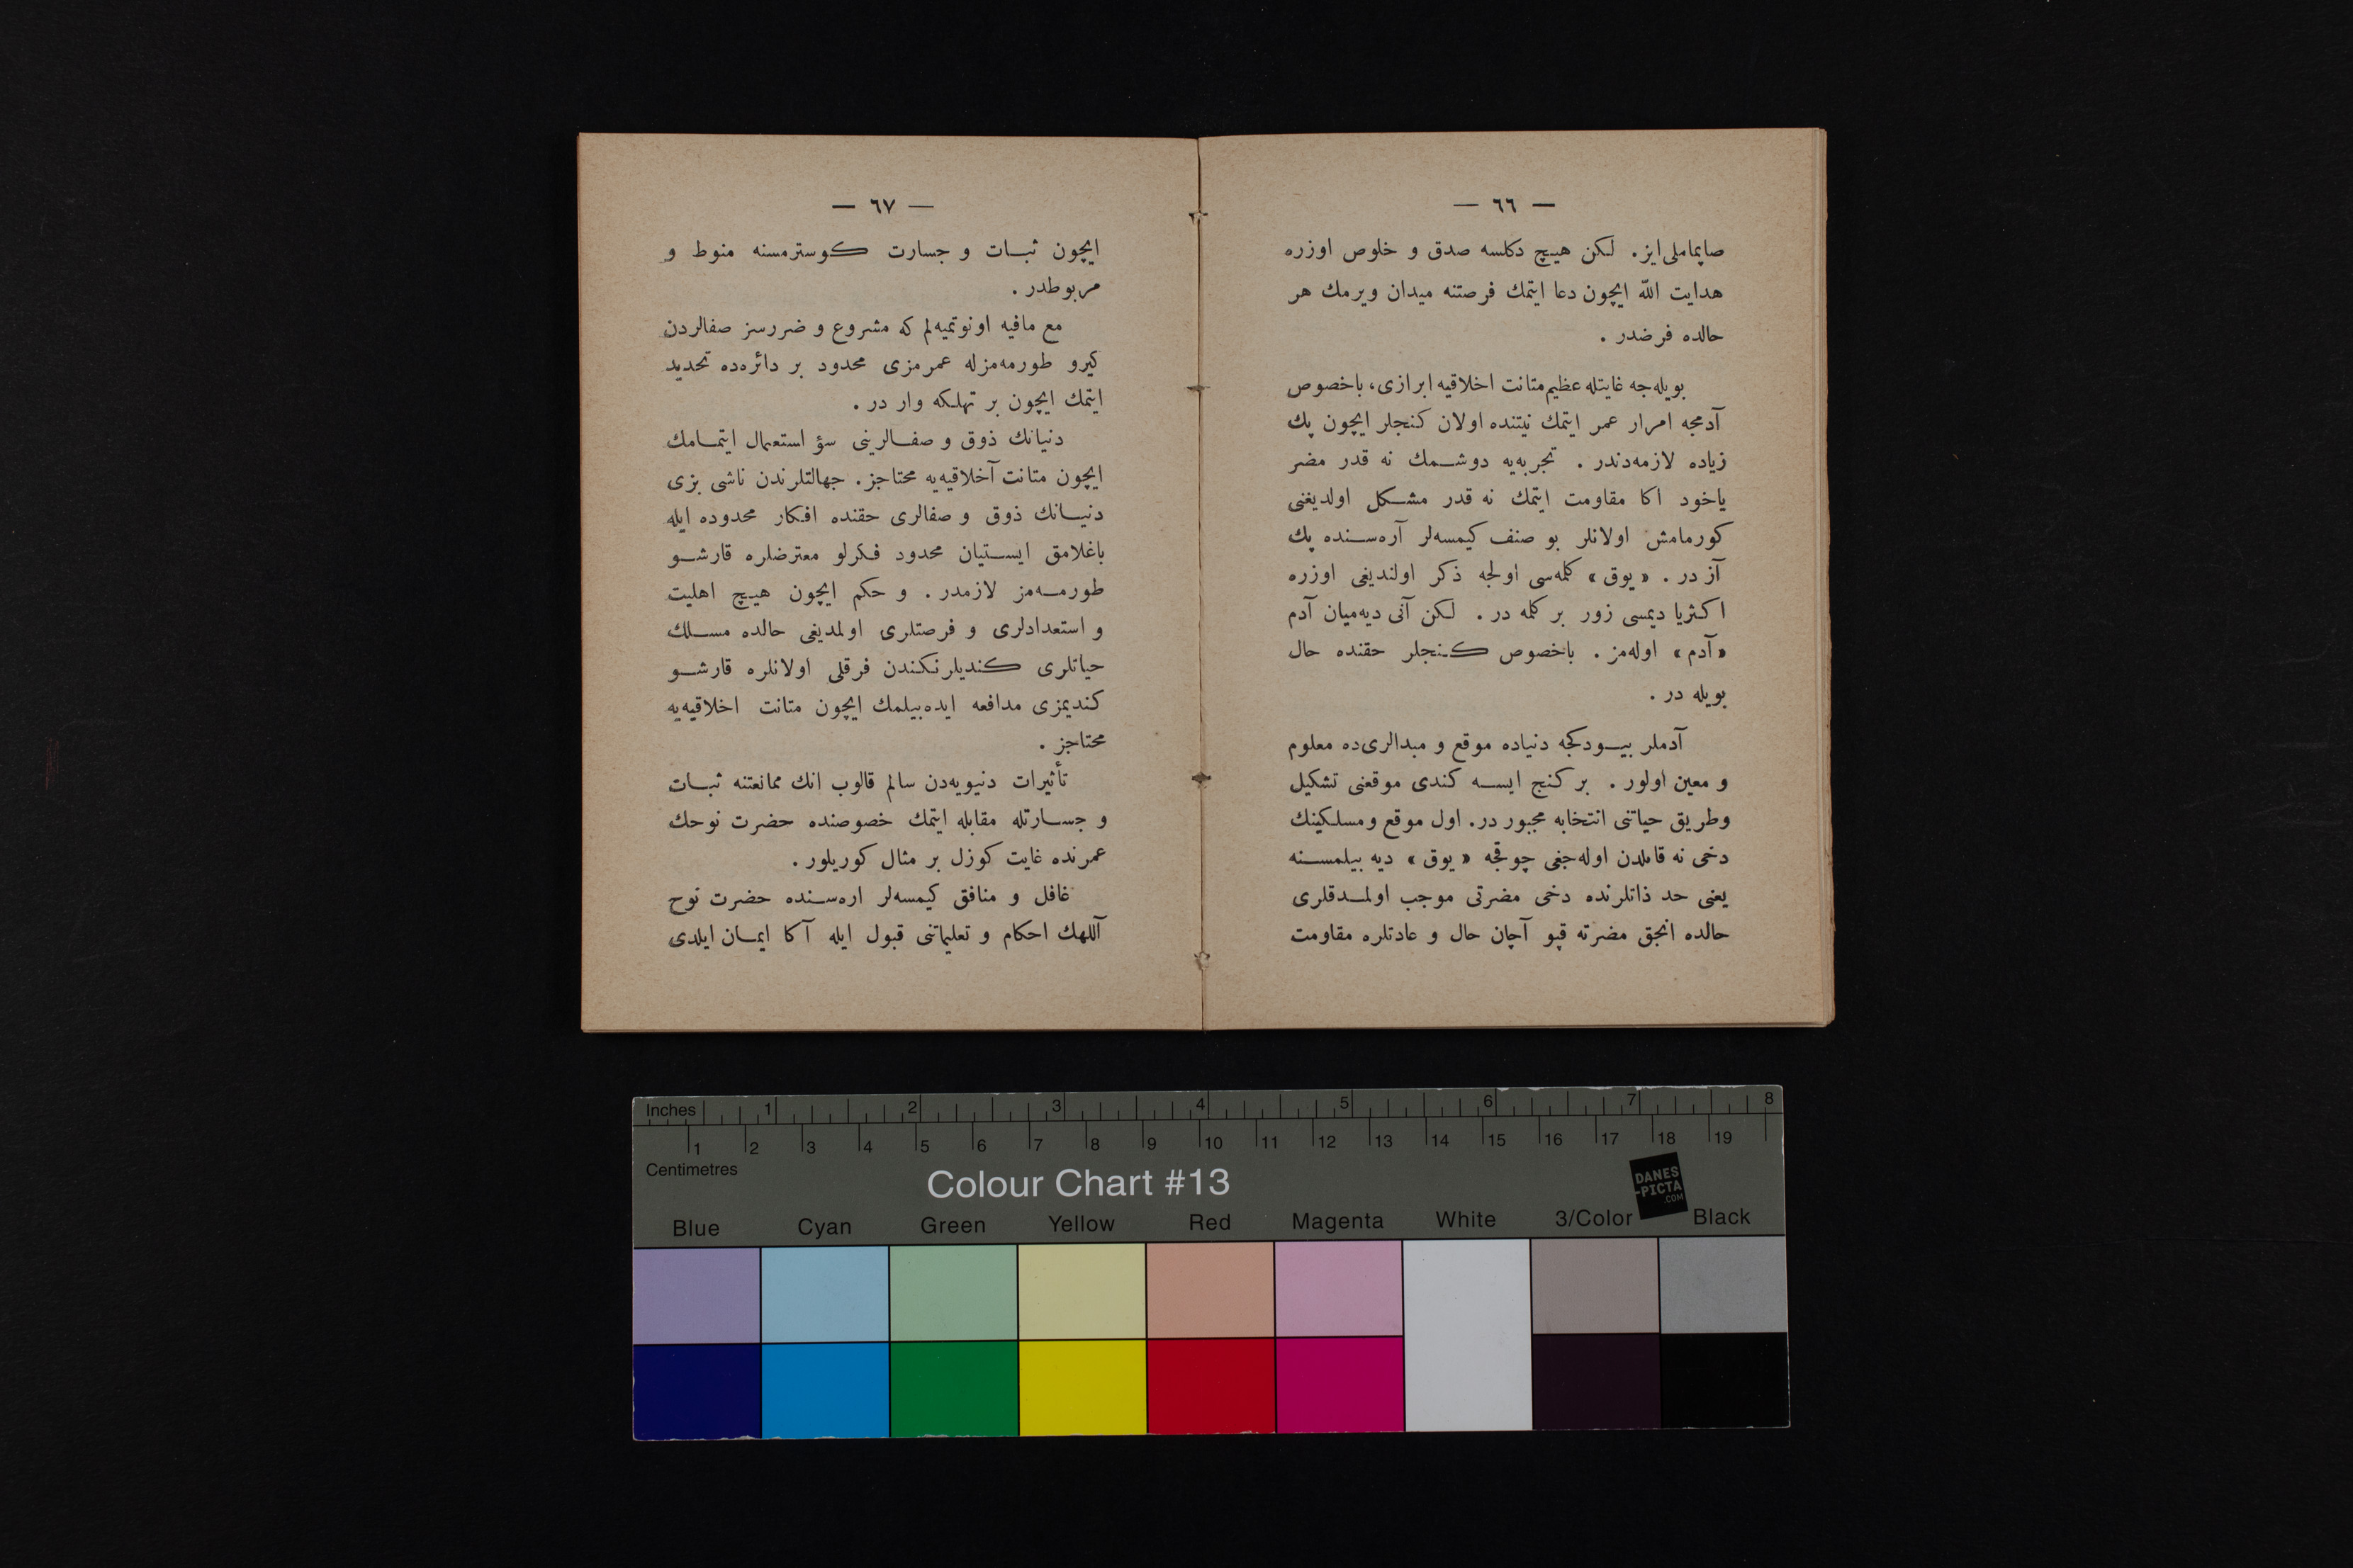 — ٦٦ —
صاپماملی‌ایز. لكن هیچ دكلسه صدق و خلوص اوزره
هدایت اللّه ایچون دعا ایتمك فرصتنه میدان ویرمك هر
حالده فرضدر .
بویله‌جه غایتله عظیم متانت اخلاقیه ابرازی، باخصوص
آدمجه امرار عمر ایتمك نیتنده اولان كنجلر ایچون پك
زیاده لازمه‌دندر . تجربه‌یه دوشمك نه قدر مضر
یاخود اكا مقاومت ایتمك نه قدر مشكل اولدیغنی
كورمامش اولانلر بو صنف كیمسه‌لر آره‌سنده پك
آز در . «یوق» كلمه‌سی اولجه ذكر اولندیغی اوزره
اكثریا دیمسی زور بر كلمه در . لكن آنی دیه‌میان آدم
«آدم» اوله‌مز . باخصوص كنجلر حقنده حال
بویله در .
آدملر بیودكجه دنیاده موقع و مبدالری‌ده معلوم
و معین اولور . بر كنج ایسه كندی موقعنی تشكیل
وطریق حیاتنی انتخابه مجبور در. اول موقع ومسلكینك
دخی نه قاملدن اوله‌جغی چوقجه «یوق» دیه بیلمسنه
یعنی حد ذاتلرنده دخی مضرتی موجب اولمدقلری
حالده انجق مضرته قپو آچان حال و عادتلره مقاومت
— ٦٧ —
ایچون ثبات و جسارت كوسترمسنه منوط و
مربوطدر .
مع مافیه اونوتمیه‌لم كه مشروع و ضررسز صفالردن
كیرو طورمه‌مزله عمرمزی محدود بر دائره‌ده تحدید
ایتمك ایچون بر تهلكه وار در .
دنیانك ذوق و صفالرینی سؤ استعمال ایتمامك
ایچون متانت آخلاقیه‌یه محتاجز. جهالتلرندن ناشی بزی
دنیانك ذوق و صفالری حقنده افكار محدوده ایله
باغلامق ایستیان محدود فكرلو معترضلره قارشو
طورمه‌مز لازمدر . و حكم ایچون هیچ اهلیت
و استعدادلری و فرصتلری اولمدیغی حالده مسلك
حیاتلری كندیلرنكندن فرقلی اولانلره قارشو
كندیمزی مدافعه ایده‌بیلمك ایچون متانت اخلاقیه‌یه
محتاجز .
تأثیرات دنیویه‌دن سالم قالوب انك ممانعتنه ثبات
و جسارتله مقابله ایتمك خصوصنده حضرت نوحك
عمرنده غایت كوزل بر مثال كوریلور .
غافل و منافق كیمسه‌لر اره‌سنده حضرت نوح
آللهك احكام و تعلیماتنی قبول ایله آكا ایمان ایلدی
Inches 1 2 3 4 5 6 7 8
1 2 3 4 5 6 7 8 9 10 11 12 13 14 15 16 17 18 19
Centimetres
Colour Chart #13
DANES
-PICTA
.COM
Blue Cyan Green Yellow Red Magenta White 3/Color Black